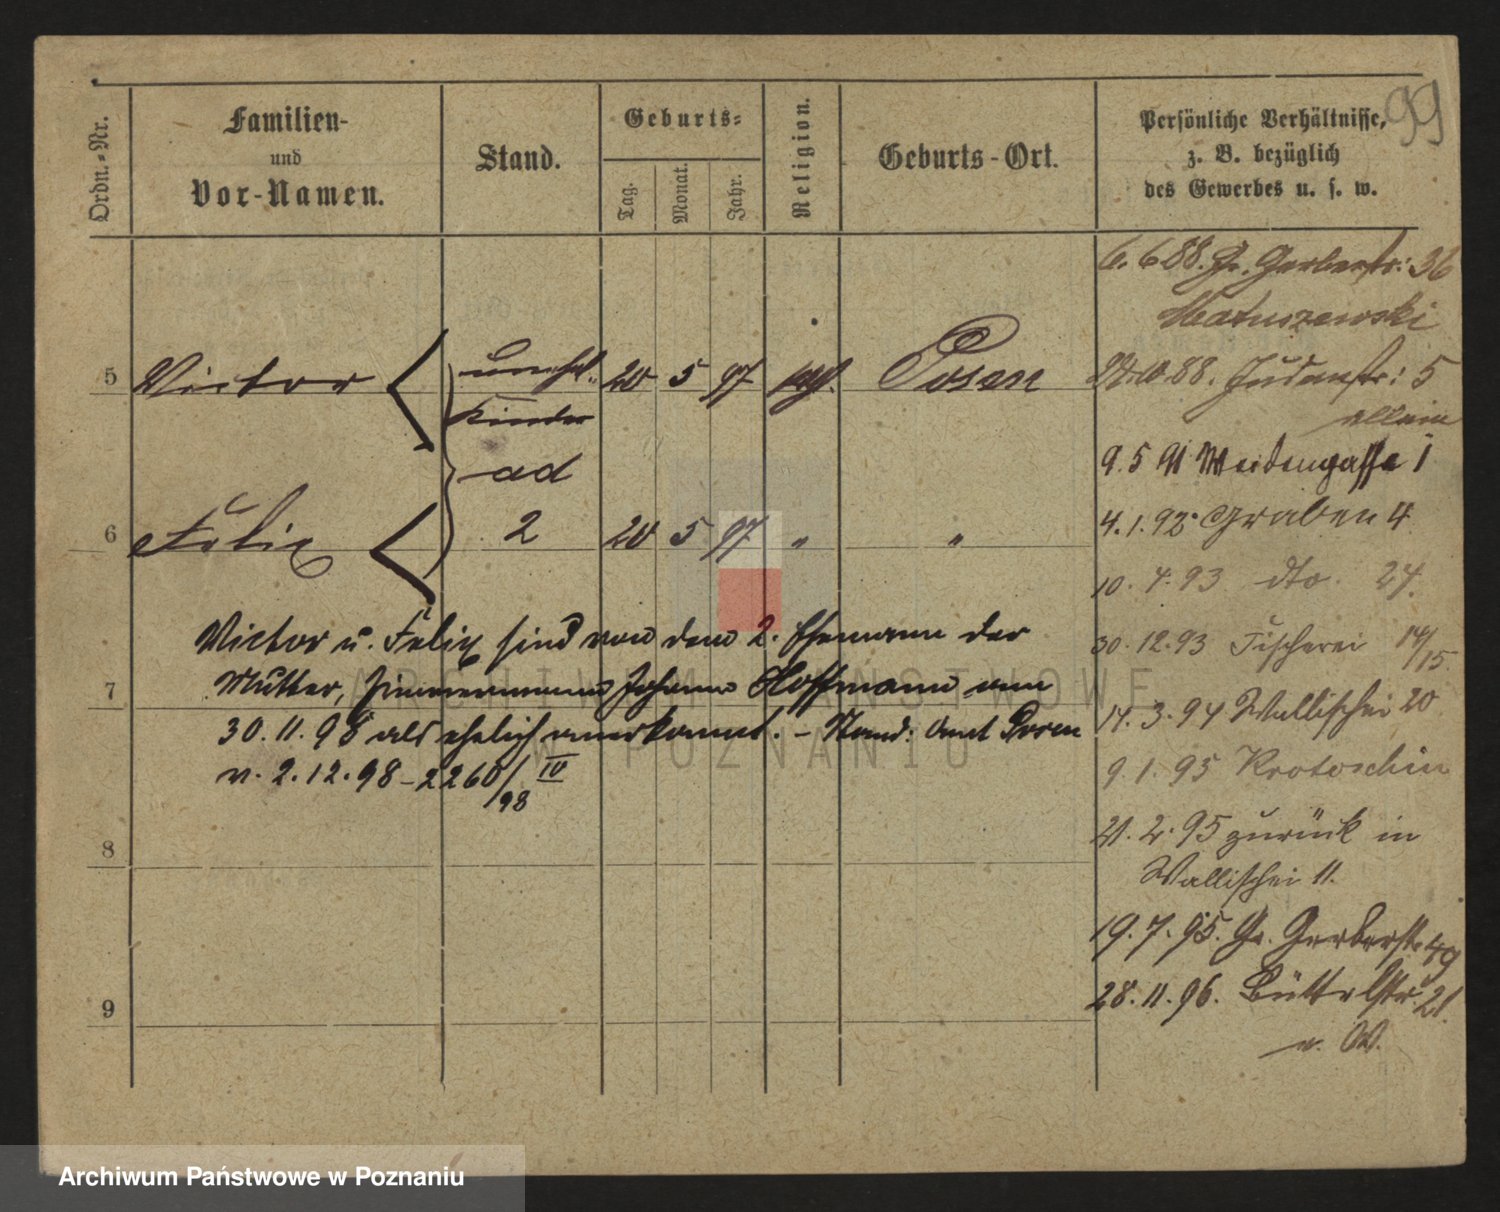 99
Ordn.-Nr.
Familien-
und
Vor-Namen.
Stand.
Geburts-
Tag.
Monat.
Jahr.
Religion.
Geburts-Ort.
Persönliche Verhältnisse,
z. B. bezüglich
des Gewerbes u. s. w.
6. 6 88. Gr. Gerberstr: 36
Matuszewski
88. Judenstr: 5
allein
9. 5 91 Weidengasse 1
4. 1. 92 Graben 4
10. 4. 93 dto. 24.
30. 12. 93 Fischerei 14/15.
14. 3. 94 Wallischei 20
9. 1. 95 Krotoschin
21. 2. 95 zurück in
Wallischei 11.
19. 7. 95. Gr. Gerberstr 49
28. 11. 96. Büttelstr. 21.
v. W.
5 Victor unehel. 20 5 97 Posen
Kinder
ad
6 Felix 2 20 5 97 " "
Victor u. Felix sind von dem 2. Ehemann der
7 Mutter, Zimmermann Johann Hoffmann am
30. 11. 98 als ehelich anerkannt. – Stand: Amt Posen
v. 2. 12. 98 – 2260/98 IV
8
9
ARCHIWUM PAŃSTWOWE
W POZNANIU
Archiwum Państwowe w Poznaniu